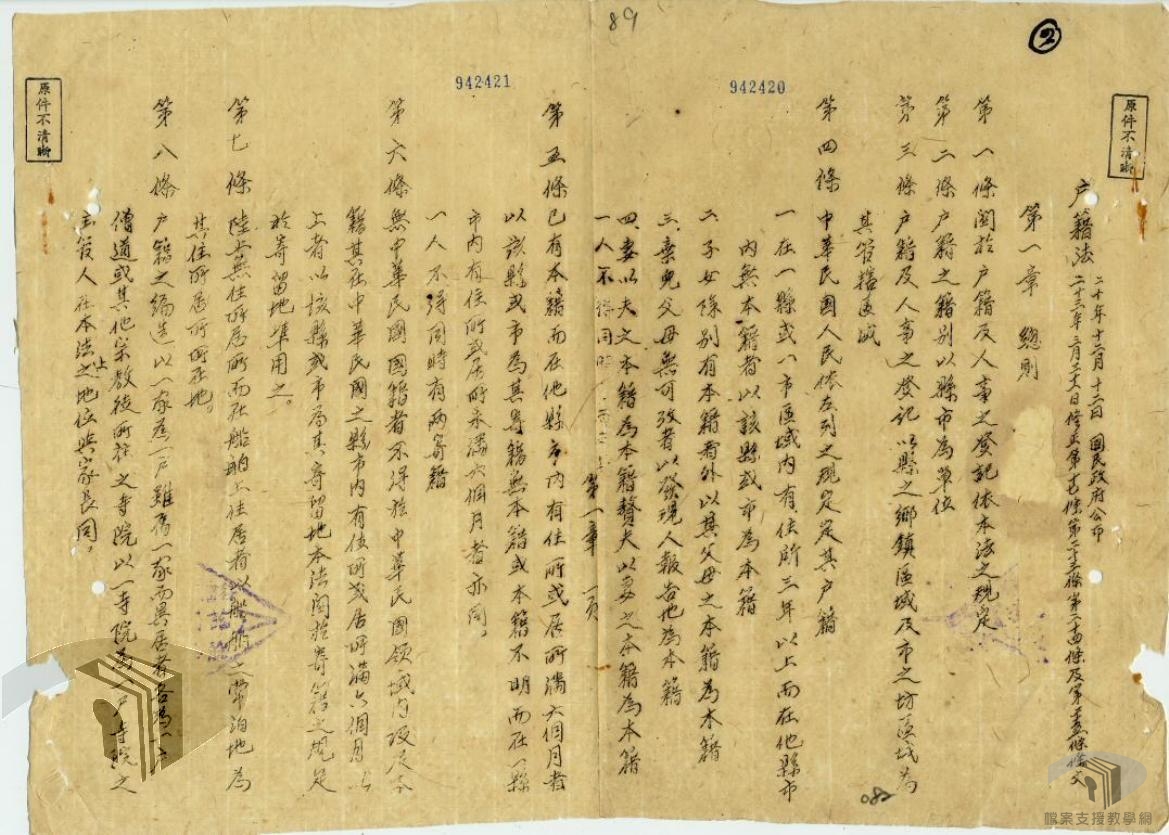 89
②
942421
942420
原件不清晰
原件不清晰
戶籍法
二十年十二月十二日 國民政府公布
二十三年三月三十日修正第十七條第二十三條第二十四條及第五條條文
第一章 總則
第一條關於戶籍及人事之登記依本法之規定
第二條戶籍之籍別以縣市為單位
第三條戶籍及人事之登記以縣之鄉鎮區域及市之坊區域為
其管轄區域
第四條 中華民國人民依左列之規定定其戶籍
一 在一縣或一市區域內有住所三年以上而在他縣市
內無本籍者以該縣或市為本籍
二 子女除別有本籍者外以其父母之本籍為本籍
三、棄兒父母無可攷者以發現人報告地為本籍
四、妻以夫之本籍為本籍贅夫以妻之本籍為本籍
一人不得同時
第一章 一頁
第五條 已有本籍而在他縣市內有住所或居所滿六個月者
以該縣或市為其寄籍無本籍或本籍不明而在一縣
市內有住所或居所未滿六個月者亦同。
一人不得同時有兩寄籍
第六條 無中華民國國籍者不得於中華民國領域內設定本
籍其在中華民國之縣市內有住所或居所滿六個月以
上者以該縣或市為其寄留地本法關於寄籍之規定
於寄留地準用之。
第七條 陸上無住所居所而在船舶上住居者以船舶之常泊地為
其住所居所所在地。
第八條 戶籍之編造以一家為一戶雖屬一家而異居者各為一戶
僧道或其他宗教徒所在之寺院以一寺院為一戶寺院之
主管人在本法上之地位與家長同,
082
檔案支援教學網